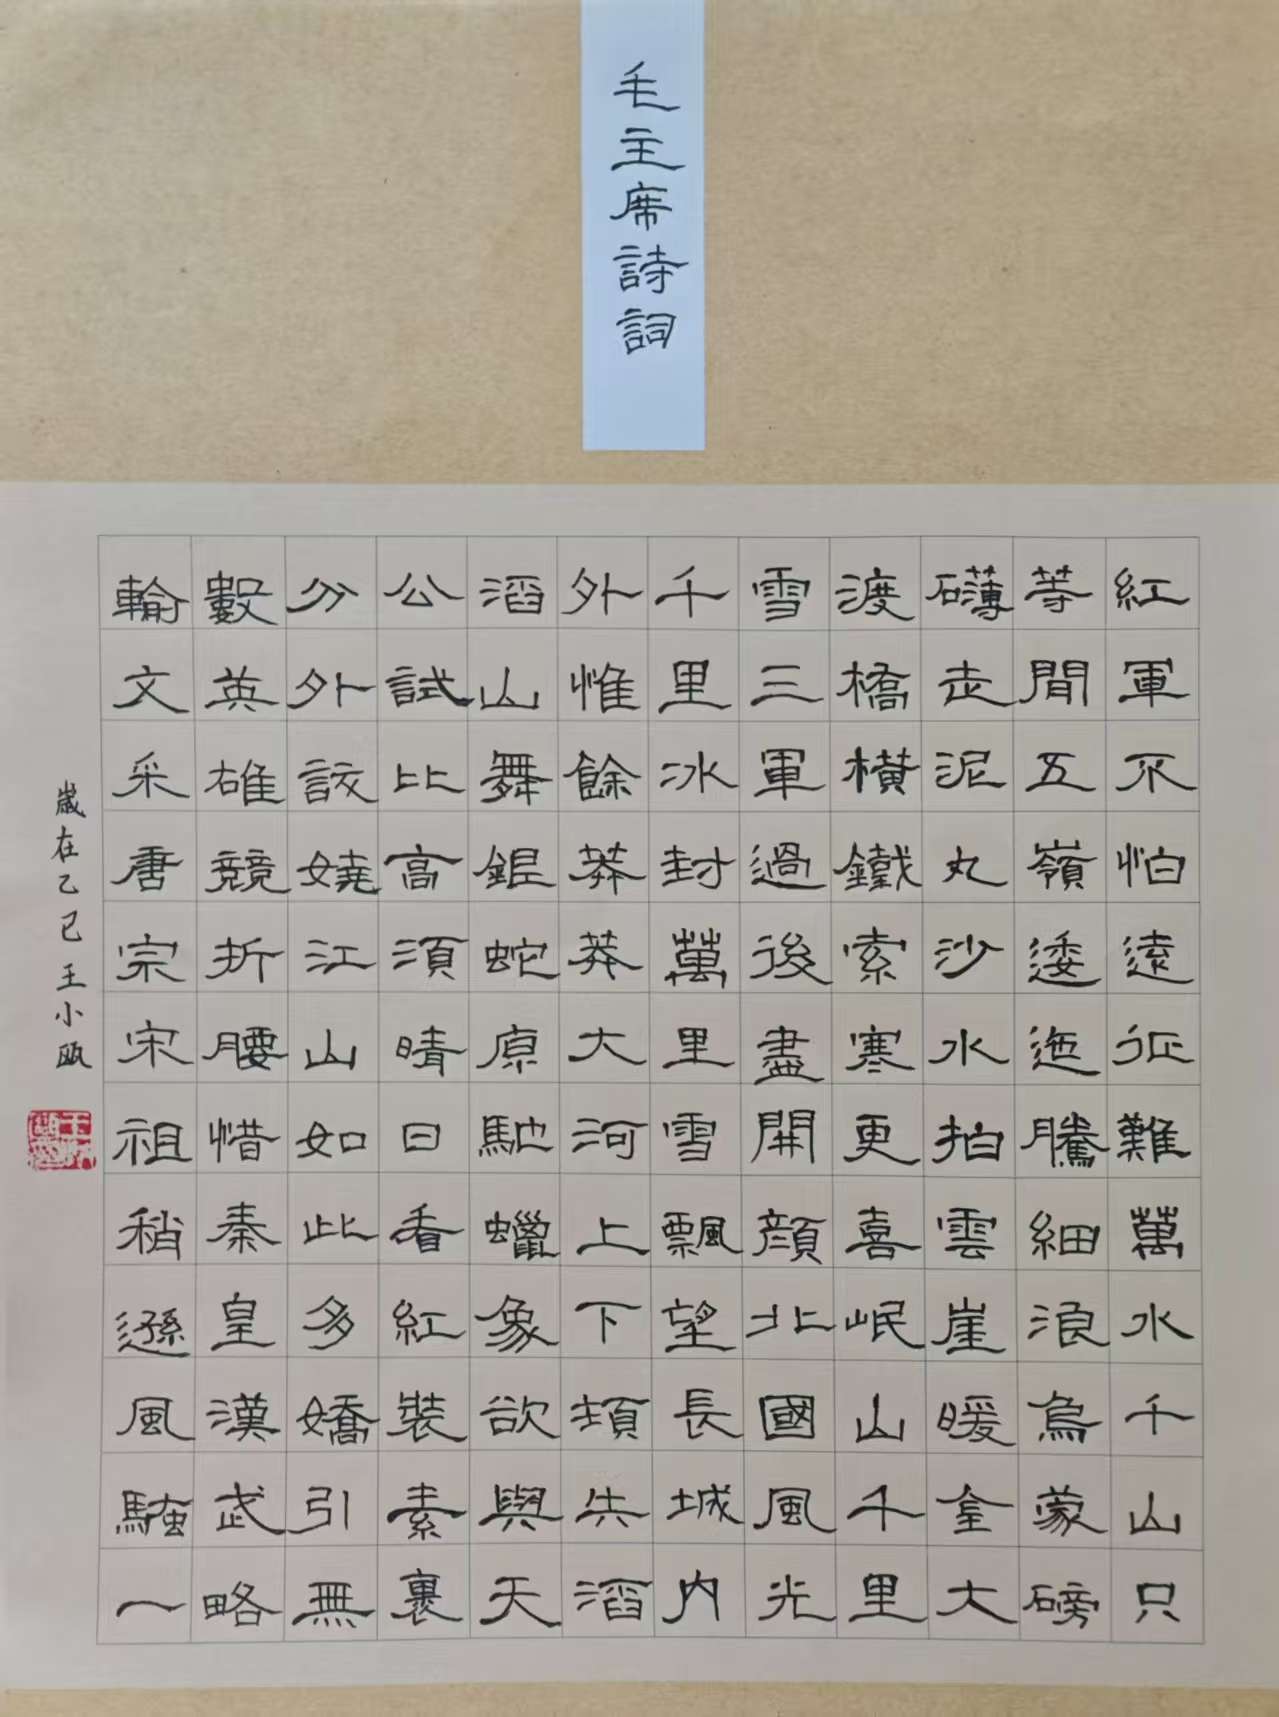 毛主席詩詞
紅軍不怕遠征難萬水千山只
等閒五嶺逶迤騰細浪烏蒙磅
礴走泥丸沙水拍雲崖暖金大
渡橋橫鐵索寒更喜岷山千里
雪三軍過後盡開顏北國風光
千里冰封萬里雪飄望長城內
外惟餘莽莽大河上下頓失滔
滔山舞銀蛇原馳蠟象欲與天
公試比高須晴日看紅裝素裹
分外該嬈江山如此多嬌引無
數英雄競折腰惜秦皇漢武略
輸文采唐宗宋祖稍遜風騷一
歲在乙巳王小甌